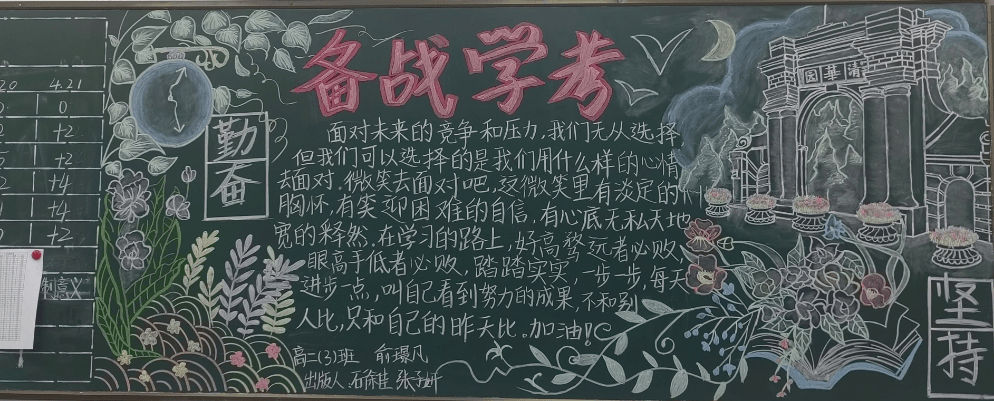 备战学考
清华园
勤奋
面对未来的竞争和压力,我们无从选择,
但我们可以选择的是我们用什么样的心情
去面对.微笑去面对吧,这微笑里有淡定的
胸怀,有笑迎困难的自信,有心底无私天地
宽的释然.在学习的路上,好高骛远者必败,
眼高手低者必败,踏踏实实,一步一步,每天
进步一点,叫自己看到努力的成果,不和别
人比,只和自己的昨天比.加油!
高二(3)班 俞璟凡
出版人
坚持
4.21
0
+2
+2
+4
+4
+2